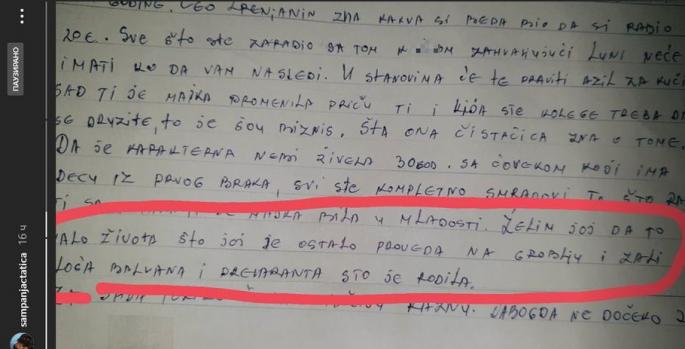 GODINE. CEO ZRENJANIN ZNA KAKVA SI BEDA BIO DA SI RADIO
20€. SVE ŠTO STE ZARADIO SA TOM ZAHVALJUJUĆI LUNI NEĆE
IMATI KO DA VAM NASLEDI. U STANOVIMA ĆE TE PRAVITI AZIL ZA
SAD TI JE MAJKA PROMENILA PRIČU TI I STE KOLEGE TREBA
SE DRUŽITE, TO JE ŠOU BIZNIS. ŠTA ONA ČISTAČICA ZNA O TOME.
DA JE KARAKTERNA NEBI ŽIVELA 30GOD. SA ČOVEKOM KOJI IMA
DECU IZ PRVOG BRAKA, SVI STE KOMPLETNO SMRADOVI TO ŠTO
TI MAJKA BILA U MLADOSTI. ŽELIM JOJ DA TO
MALO ŽIVOTA ŠTO JOJ JE OSTALO PROVEDA NA GROBLJU I ŽALI
BALVANA I DREKARANTA ŠTO JE RODILA.
KAZNU. DABOGDA NE DOČEKO
ПАУЗИРАНО
sampanjactatica 16 ч